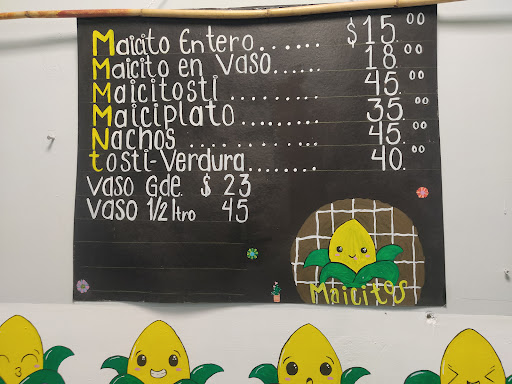 Maicito Entero...... $15.00
Maicito en Vaso...... 18.00
Maicitosti .......... 45.00
Maiciplato......... 35.00
Nachos ............ 45.00
tosti-Verdura........ 40.00
Vaso Gde. $ 23
Vaso 1/2 ltro 45
Maicitos